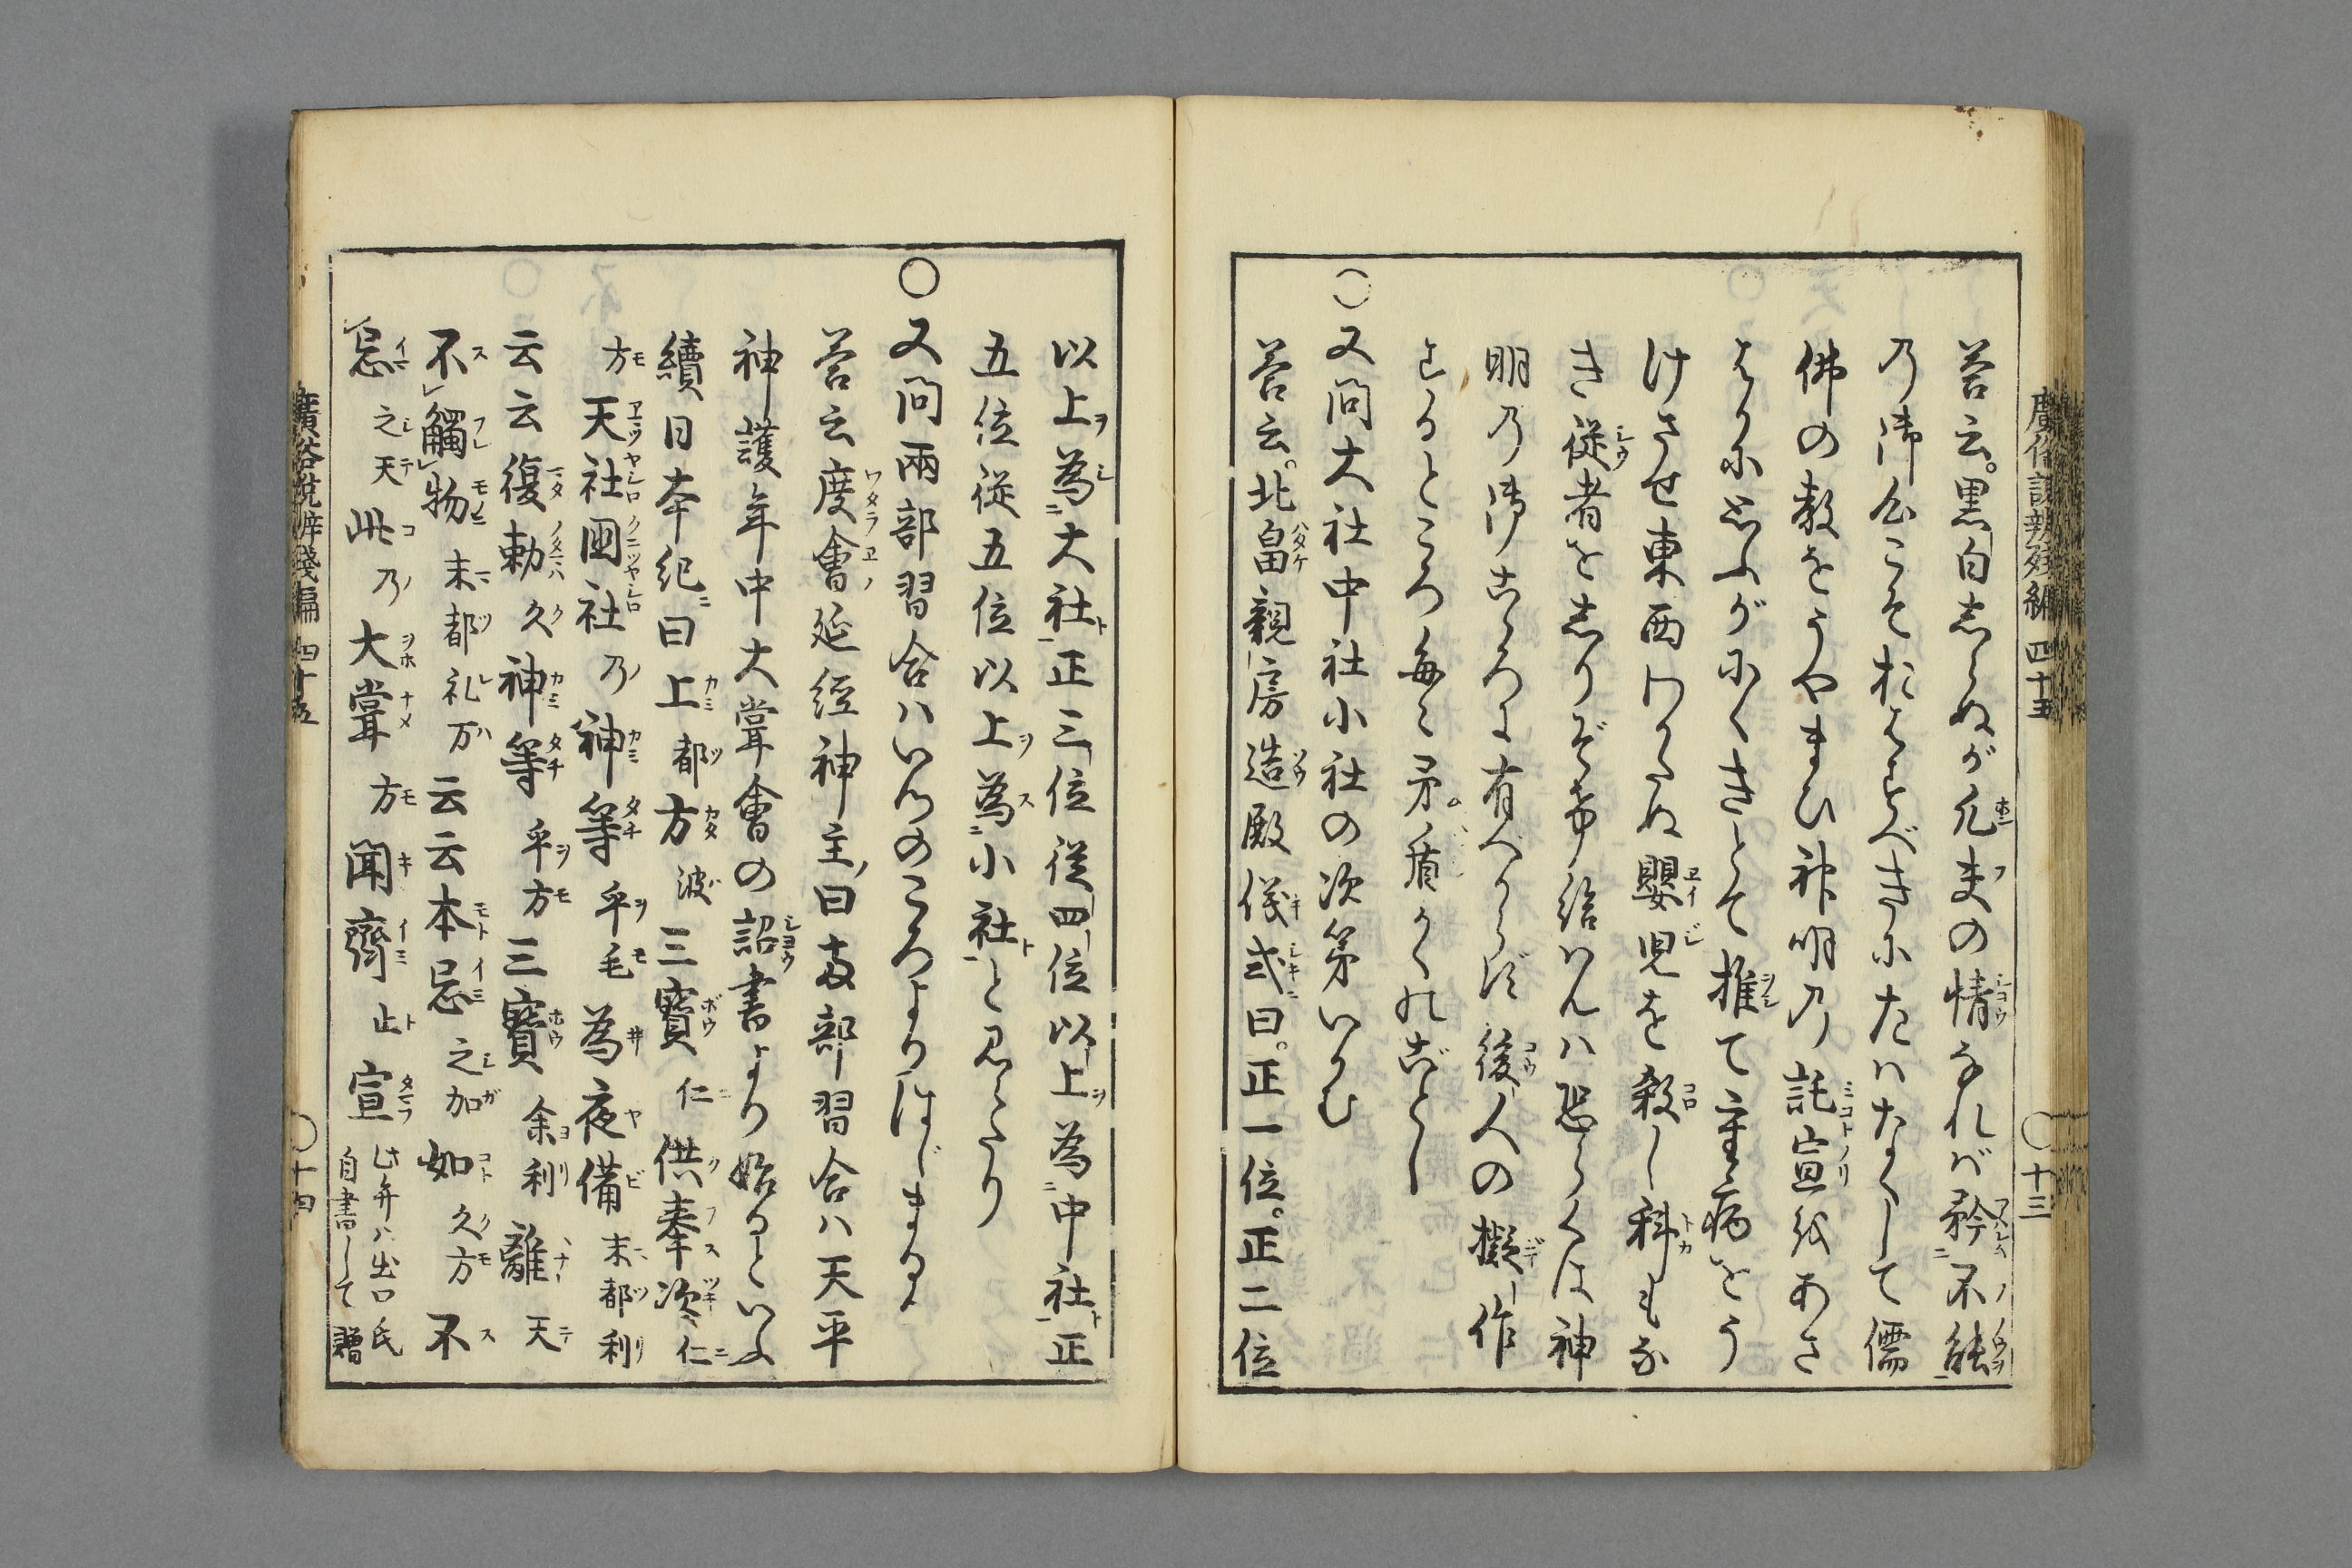 廣俗説辨残編 四十五
〇十三
答云。黒白しらぬが凡夫の情なれバ矜不能
乃御仏こそおはすべきにたハなくして儒
佛の教をうやまひ神明乃託宣をあさ
はかに思ふがにくきとて推て重病をう
けさせ東西わかたぬ嬰児を殺し科もな
き従者をしりぞけ給はんハ恐らくは神
明乃御こゝろに有べからず後人の擬作
するところ毎々矛盾かくれごとし
〇又問大社中社小社の次第いかむ
答云。北畠親房造殿儀式曰。正一位。正二位
以上為大社正三位従四位以上為中社正
五位従五位以上為小社と見えたり
〇又問兩部習合ハいつのころよりはじまるゝ
答云度會延経神主曰両部習合ハ天平
神護年中大甞會の詔書より始るといふ
續日本紀曰上都方波三寶仁供奉次仁
方天社國社乃神等乎毛為夜備末都利
云云復勅久神等乎方三寳余利離天
不觸物末都礼方云云本忌之加如久方不
忌之天此乃大甞方聞齋止宣此弁ハ出口氏
自書して贈
廣俗説辨残編 四十五
〇十四